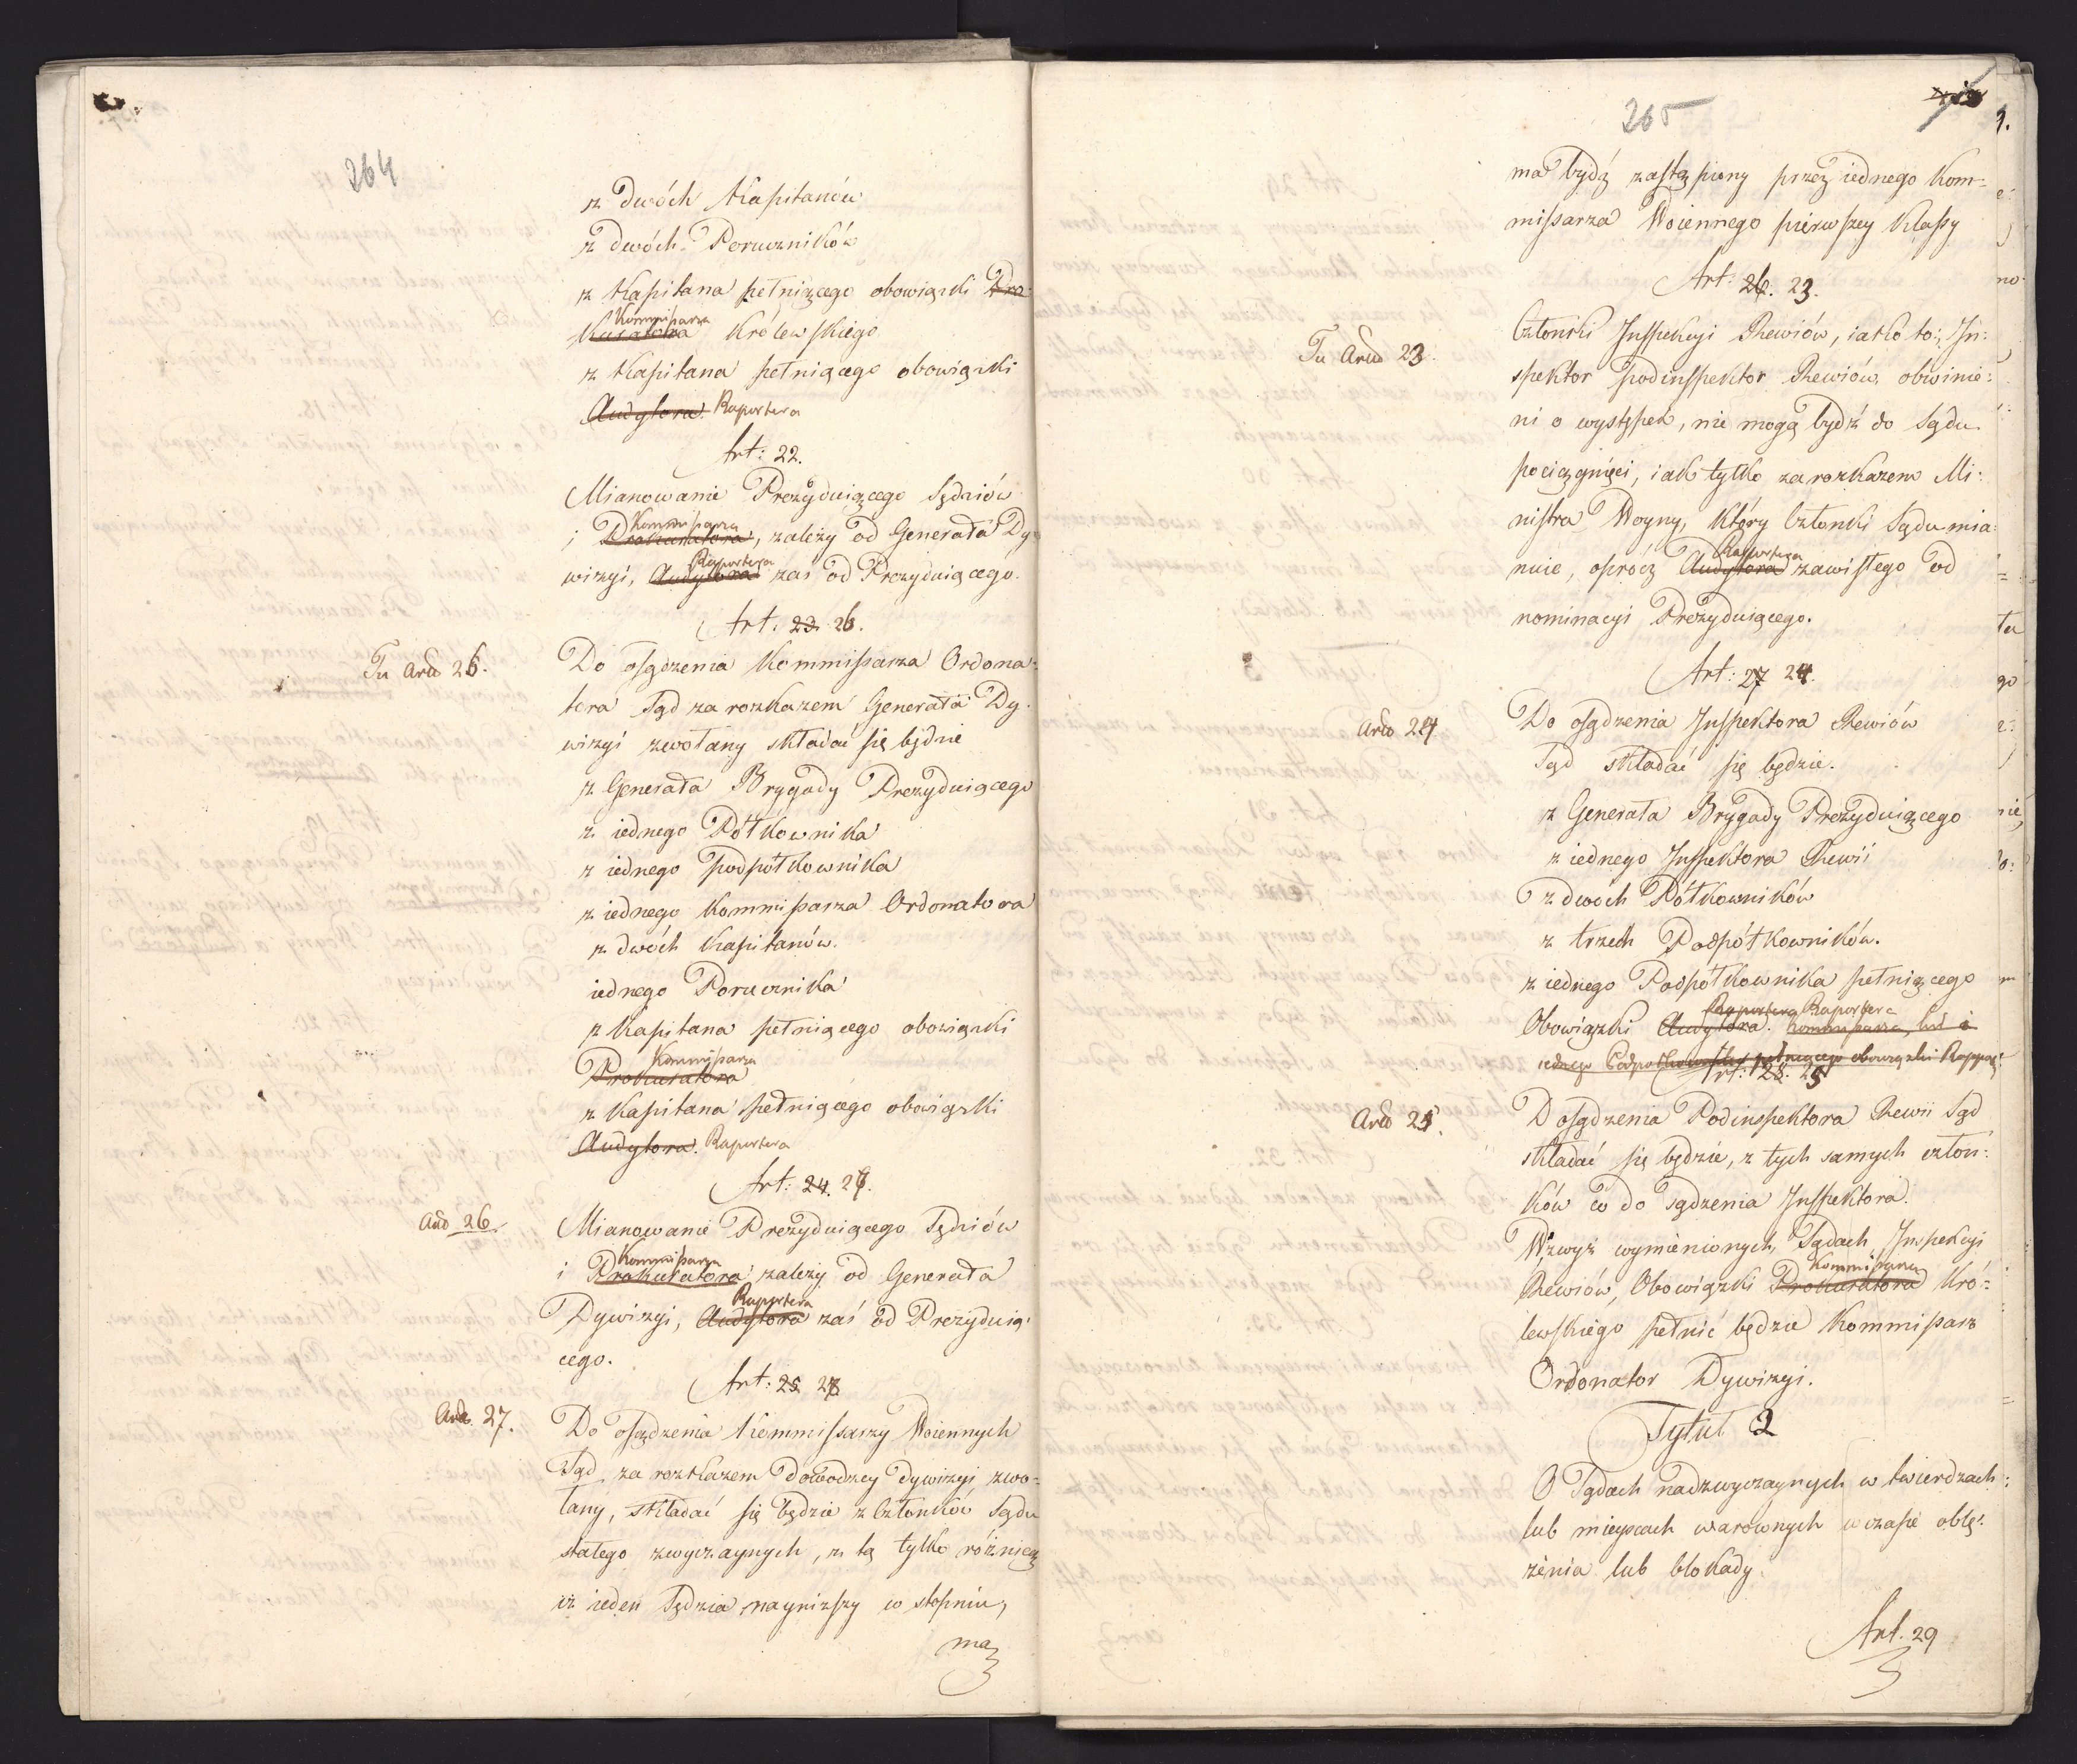 264
z dwóch Kapitanów
z dwóch Poruczników
z Kapitana pełniącego obowiązki Pro
Kommissarza
kuratora Królewskiego
z Kapitana pełniącego obowiązki
Audytora. Raportera
Art: 22.
Mianowanie Prezyduiącego Sędziów
Kommissarza
i Prokuratora, zależy od Generała Dy
Raportera
wizyi, Audytora zaś od Prezyduiącego.
Art. 23. 26.
Tu Arct 26.
Do osądzenia Kommissarza Ordona:
tora Sąd za rozkazem Generała Dy.
wizyi zwołany składać się będzie
z Generała Brygady Prezyduiącego
z iednego Półkownika
z iednego Podpółkownika
z iednego Kommissarza Ordonatora
z dwóch Kapitanów.
iednego Porucznika
z Kapitana pełniącego obowiązki
Kommissarza
Prokuratora
z Kapitana pełniącego obowiązki
Audytora. Raportera
Art: 24. 27.
26.
Mianowanie Prezyduiącego Sędziów
Kommissarza
i Prokuratora zależy od Generała
Raportera
Dywizyi, Audytora zaś od Prezyduią:
cego.
Art: 25 28
27.
Do osądzenia Kommissarzy Woiennych
Sąd, za rozkazem Dowodzcy Dywizyi zwo:
łany, składać się będzie z Członków Sądu
stałego zwyczaynych, z tą tylko różnicą
iż ieden Sędzia naynizszy w stopniu,
ma
265
ma bydź zastąpiony przez iednego Kom:
missarza Woiennego pierwszey Klassy
Art: 26. 23.
Tu Arct 23.
Członki Inspekcyi Rewiów, iako to: In:
spektor Podinspektor Rewiów, obwinie:
ni o występek, nie mogą bydź do Sądu
pociągnięci, iak tylko za rozkazem Mi:
nistra Woyny, który Członki Sądu mia:
Raportera
nuie, oprócz Audytora zawisłego od
nominacyi Prezyduiącego.
Art: 27 24.
Arct 24
Do osądzenia Inspektora Rewiów
Sąd składać się będzie.
z Generała Brygady Prezyduiącego
z iednego Inspektora Rewii
z dwóch Półkowników
z trzech Podpółkowników.
z iednego Podpółkownika pełniącego
Raportera Raportera
Obowiązki Audytora. Kommissarza,
iednego Podpółkownika pełniącego obowiązki
Art: 28. 25
Arct 25.
Do sądzenia Podinspektora Rewii Sąd
składać się będzie, z tych samych człon:
ków co do sądzenia Inspektora.
Wzwyż wymienionych Sądach Inspekcyi
Kommissarza
Rewiów, Obowiązki Prokuratora Kró:
lewskiego pełnić będzie Kommissarz
Ordonator Dywizyi.
Tytuł 2
O Sądach nadzwyczaynych w twierdzach
lub mieyscach warownych w czasie oblę:
żenia lub blokady
Art. 29